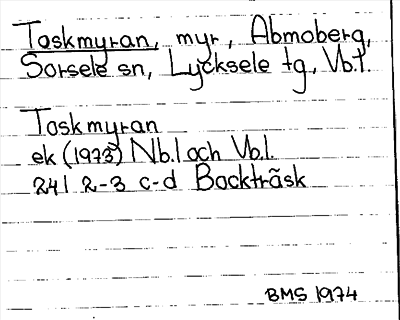 Toskmyran, myr, Abmoberg,
Sorsele sn, Lycksele tg, Vb.l.
Toskmyran
ek (1973) Nb.l och Vb.l.
24I 2-3 c-d Bockträsk
BMS 1974